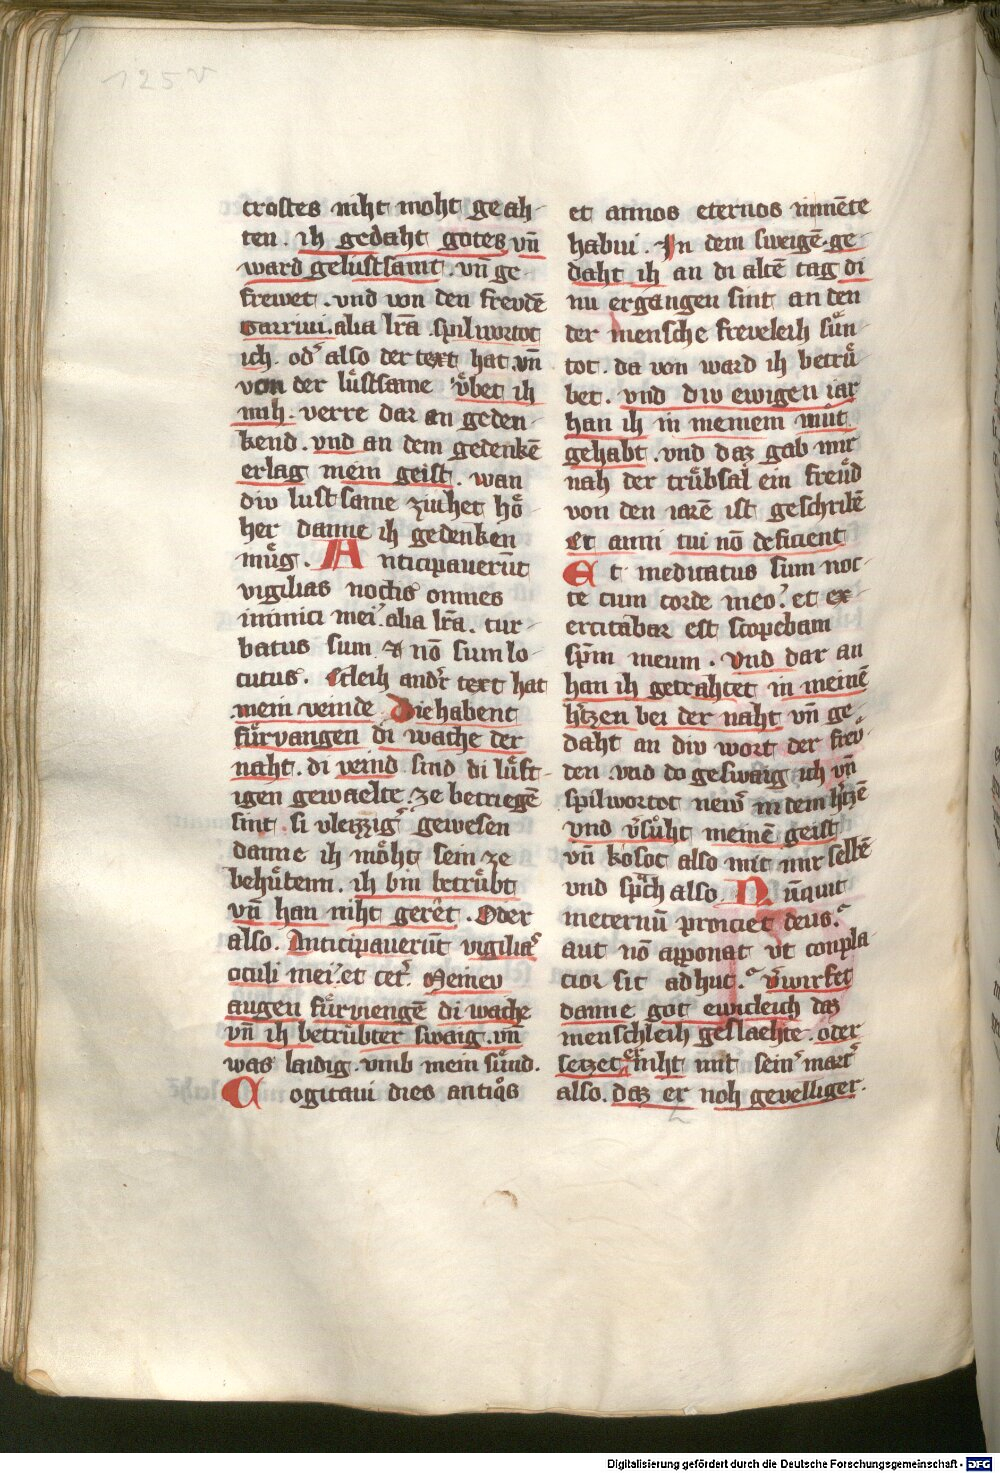 125v
trostes niht moht geah
ten. ih gedaht gotes vn̄
ward gelustsamt. vn̄ ge
frewet. vnd von den frevdē
Garriui. alia lr̄a spilwortot
ich. od' also der text hat vn̄
von der lůstsame vͤbet ih
mih. verre dar an geden
kend. vnd an dem gedenkē
erlag mein geist. wan
div lustsame ziuhet hoͤ
her danne ih gedenken
muͤg. Anticipauerūt
vigilias noctis omnes
inimici mei. alia lr̄a. tur
batus sum & nō sum lo
cutus. Etleih and'r text hat
mein veinde. Die habent
fuͤrvangen di wache der
naht. di veind sind di luͤft
igen gewaelte. ze betriegē
sint si vleizzig' gewesen
danne ih moͤht sein ze
behuͤtenn. ih bin betruͤbt
vn̄ han niht geret. Oder
also. Anticipauerūt vigilias
oculi mei. et cet'. Meinev
augen fuͤrviengē di wache
vn̄ ih betrubter swaig. vn̄
was laidig. vmb mein suͤnd.
Cogitaui dies antiqos
et annos eternos in mēte
habui. In dem sweigē ge
daht ih an di altē tag di
nu ergangen sint an den
der mensche freveleih suͤn
tot. da von ward ih betruͤ
bet. vnd div ewigen iar
han ih in meinem muͤt
gehabt. vnd daz gab mir
nah der truͤbsal ein freuͤd
von den iarē ist geschribē
Et anni tui nō deficient
Et medicatus sum noc
te cum corde meo. et ex
ercitabar est scopebam
sp̄m meum. Vnd dar an
han ih getrahtet in meinē
h'tzen bei der naht vn̄ ge
daht an div wort der frev
den vnd do geswaig ich vn̄
spilwortot newr in dem h'tzē
vnd v'suͦht meinē geist
vn̄ kosot also mit mir selbē
vnd sprach also. Nūquit
ineternū proiciet deus.
aut nō apponat vt conpla
cior sit adhuc. V'wirfet
danne got ewicleich daz
menschleih geslaehte. oder
setzet er niht mit sein' mart'
also. daz er noh gevelliger.
Digitalisierung gefördert durch die Deutsche Forschungsgemeinschaft - DFG